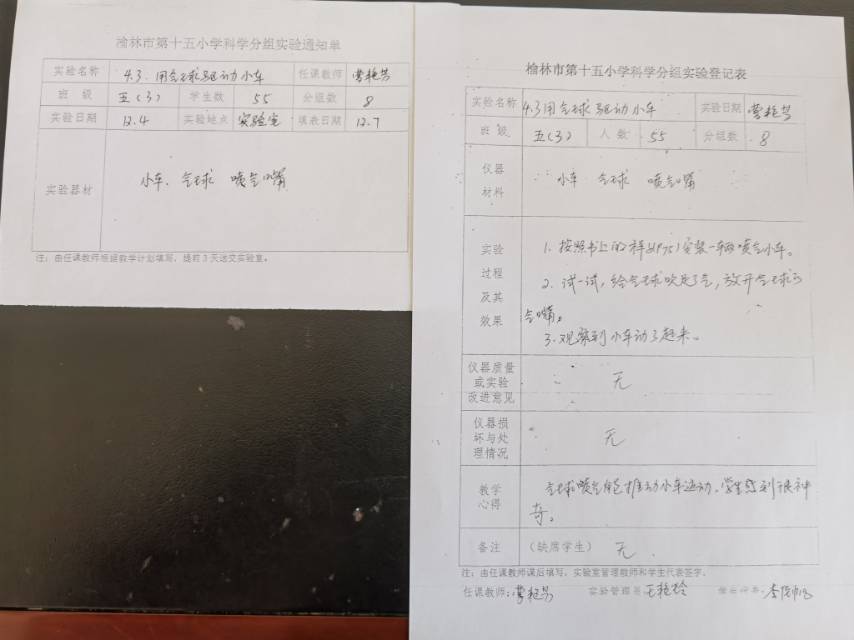 榆林市第十五小学科学分组实验通知单
实验名称 4.3.用气球驱动小车 任课教师
班 级 五(3) 学生数 55 分组数 8
实验日期 12.4 实验地点 实验室 填表日期 12.7
实验器材 小车、气球 喷气嘴
注:由任课教师根据教学计划填写,提前3天送交实验室。
榆林市第十五小学科学分组实验登记表
实验名称 4.3用气球驱动小车 实验日期
班 级 五(3) 人 数 55 分组数 8
仪器
材料
小车 气球 喷气嘴
实验
过程
及其
效果
1. 按照书上的样 安装一辆喷气小车。
2. 试一试,给气球吹足了气,放开气球的
气嘴。
3. 观察到小车动了起来。
仪器质量
或实验
改进意见
无
仪器损
坏与处
理情况
无
教学
心得
气球喷气能推动小车运动。学生感到很神
奇。
备注 (缺席学生) 无
注:由任课教师课后填写,实验室管理教师和学生代表签字。
任课教师: 实验管理员 学生代表: